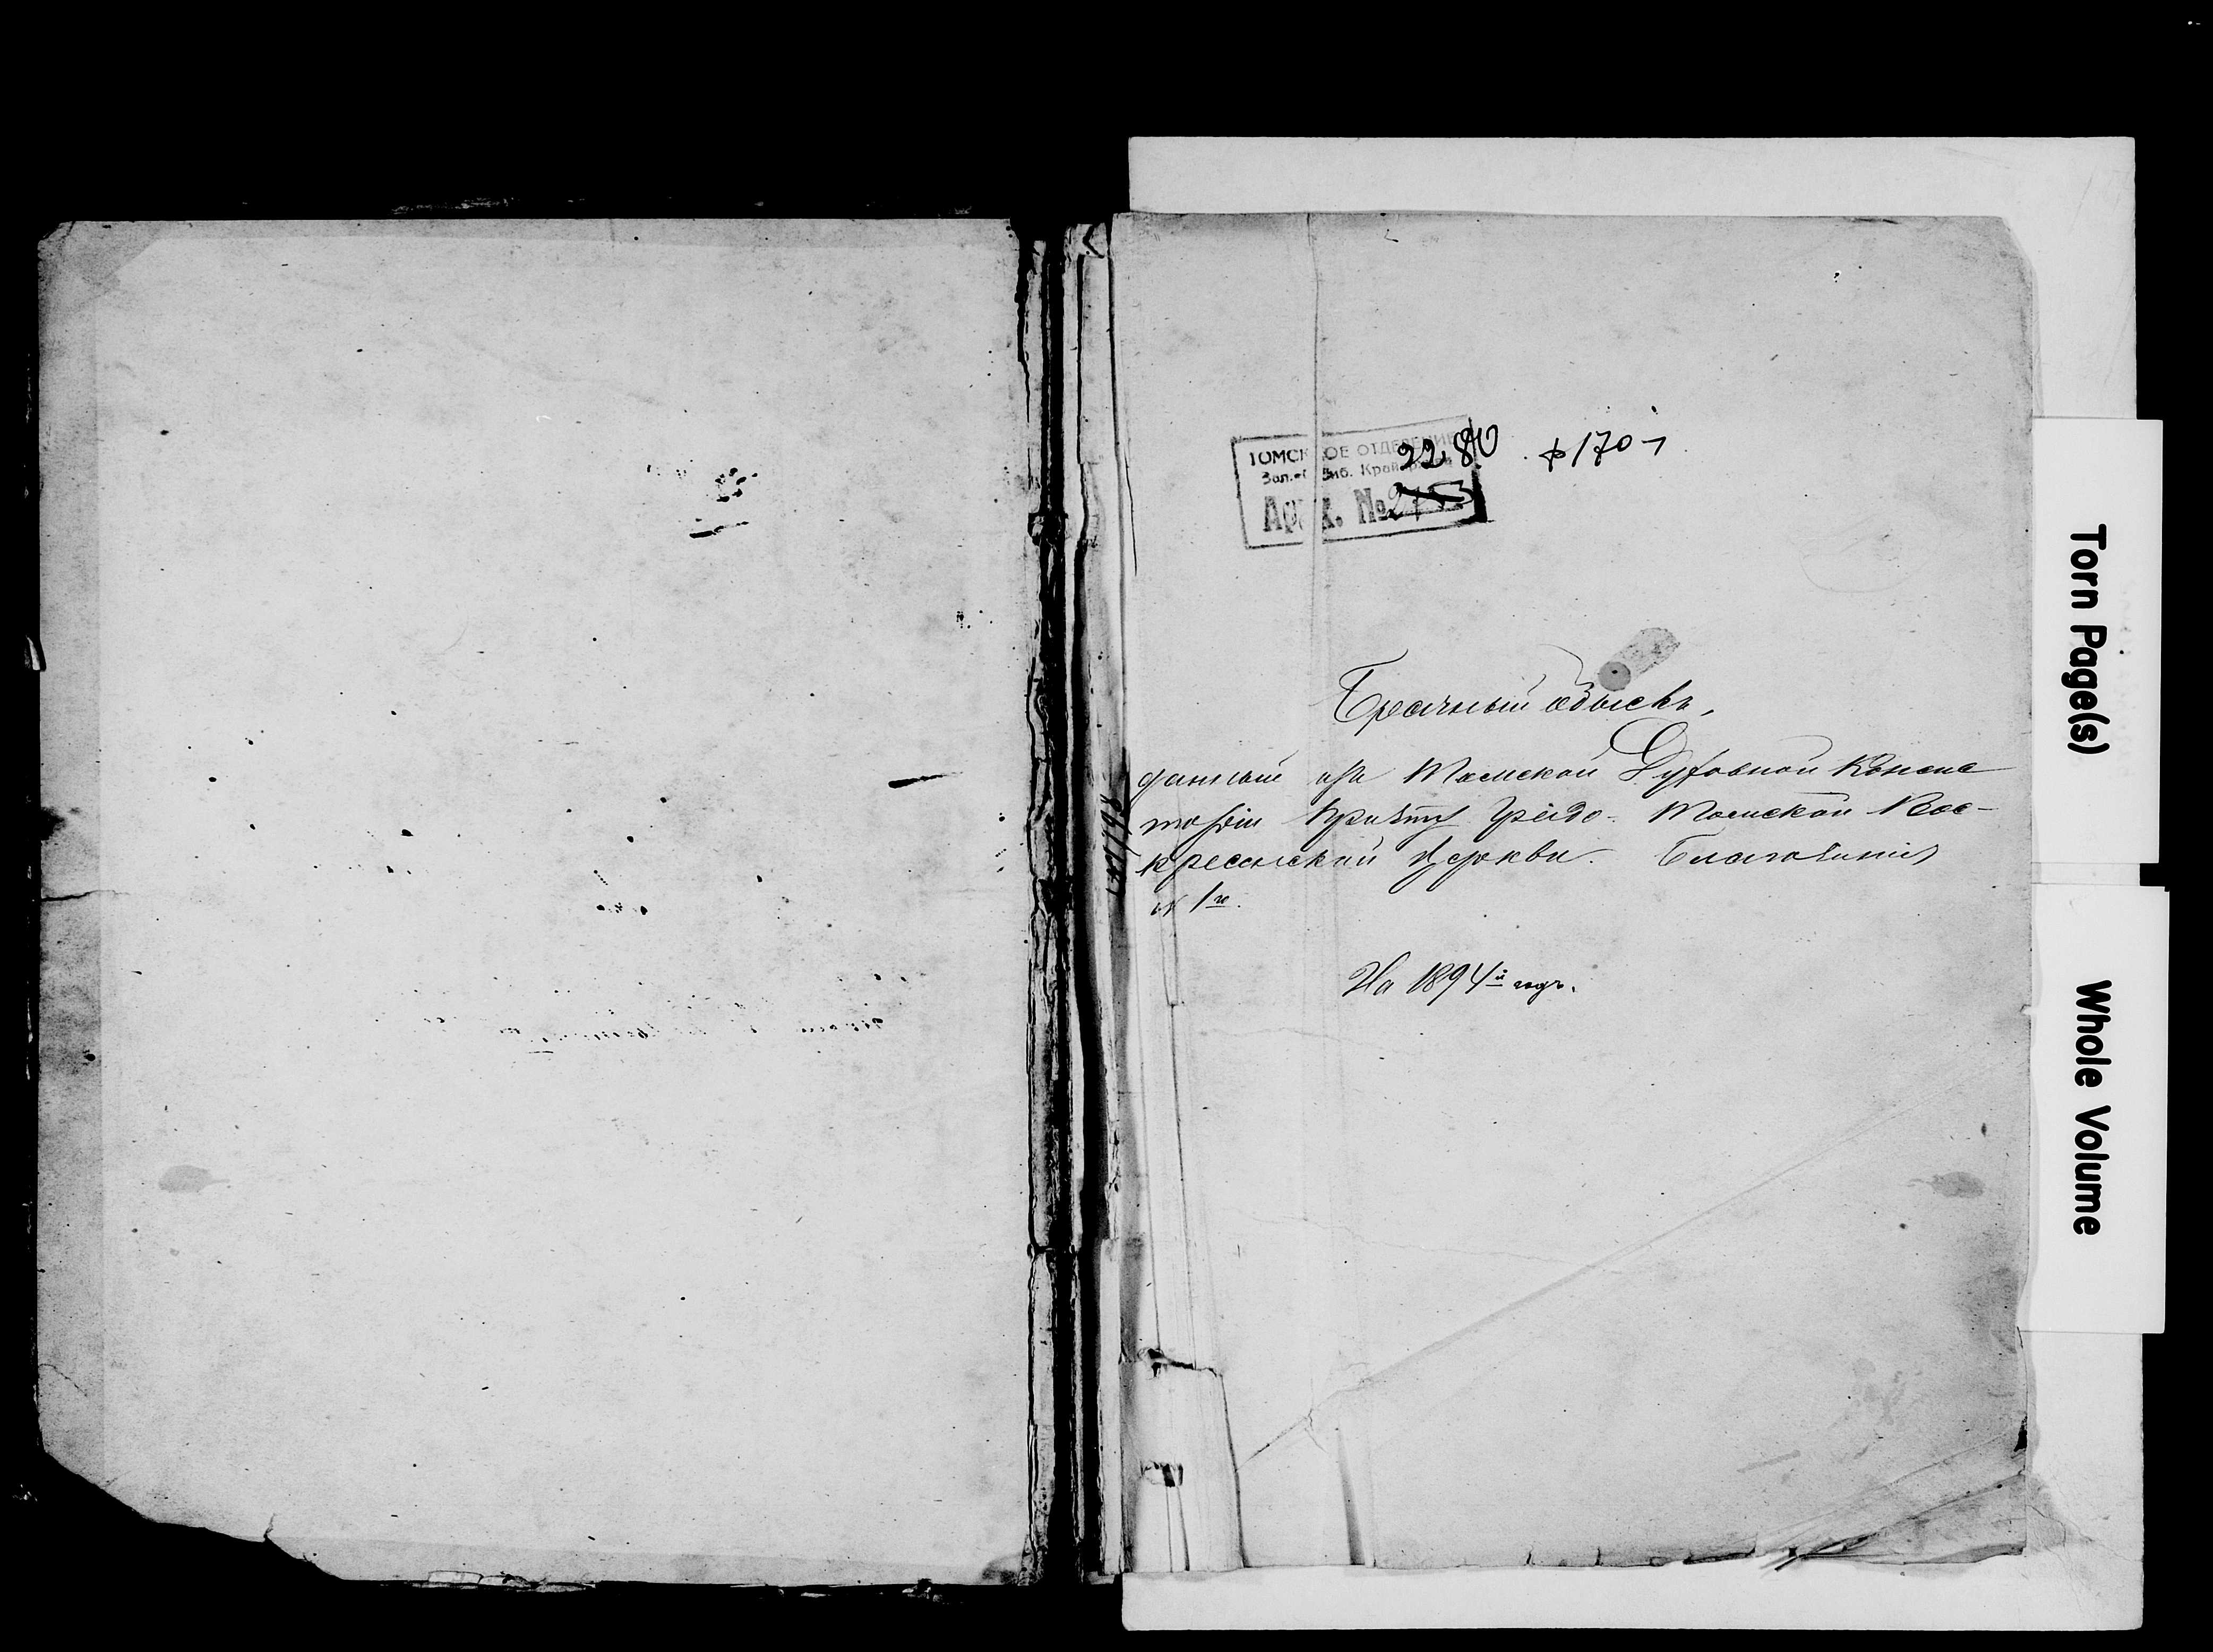 ТОМСКОЕ ОТДЕЛЕНИЕ
Зап.-Сиб. Крайархив
Арх. №
2280 ф 170-1
Брачный обыскъ,
данный изъ Томской Духовной Консис
торіи причту градо-Томской Вос-
кресенской Церкви. Благочинія
№ 1го.
На 1894й годъ.
Torn Page(s)
Whole Volume